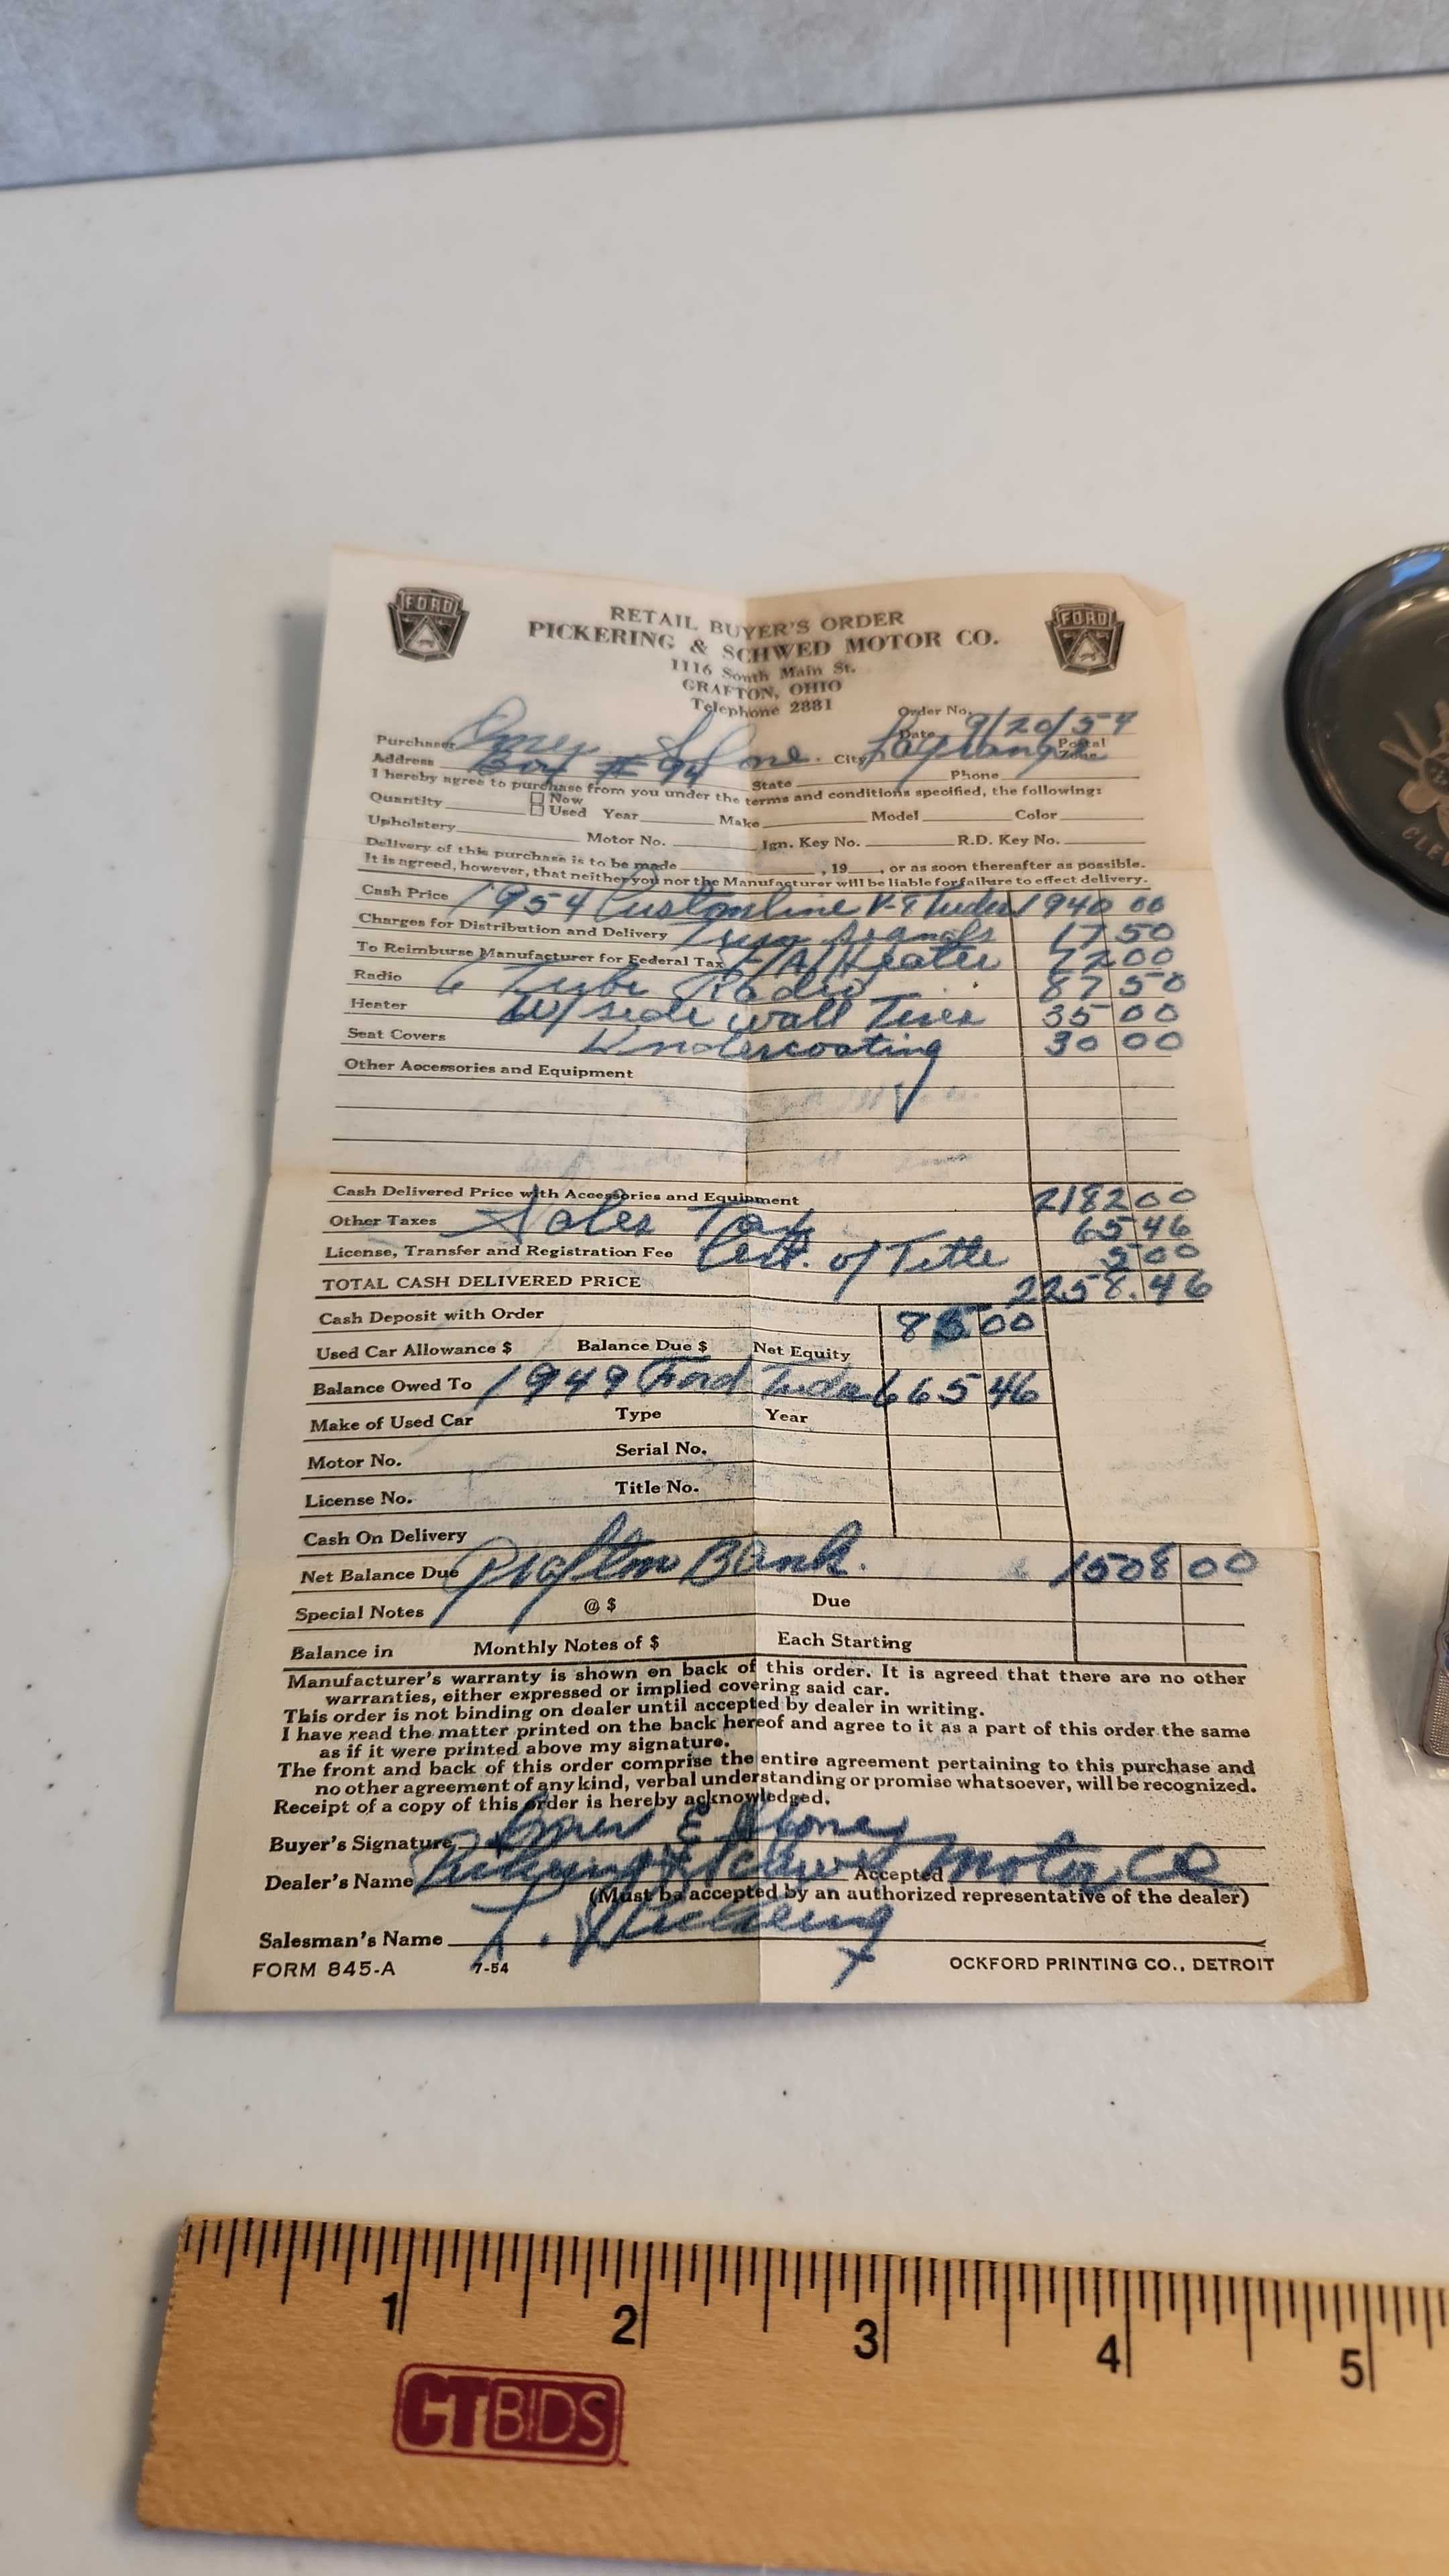 FORD
FORD
RETAIL BUYER'S ORDER
PICKERING & SCHWED MOTOR CO.
1116 South Main St.
GRAFTON, OHIO
Telephone 2881
Order No.
Date 9/20/54
Purchaser Omer Stone. City Lagrange Postal Zone
Address Box # 94 State Phone
I hereby agree to purchase from you under the terms and conditions specified, the following:
Quantity New Used Year Make Model Color
Upholstery Motor No. Ign. Key No. R.D. Key No.
Delivery of this purchase is to be made , 19 , or as soon thereafter as possible.
It is agreed, however, that neither you nor the Manufacturer will be liable for failure to effect delivery.
Cash Price 1954 Customline V-8 Tudor 1940 00
Charges for Distribution and Delivery Turn Signals 17 50
To Reimburse Manufacturer for Federal Tax M/A/Heater 72 00
Radio 6 Tube Radio 87 50
Heater W/side wall Tires 35 00
Seat Covers Undercoating 30 00
Other Accessories and Equipment
Cash Delivered Price with Accessories and Equipment 2182 00
Other Taxes Sales Tax 65 46
License, Transfer and Registration Fee Cert. of Title 5 00
TOTAL CASH DELIVERED PRICE 2258.46
Cash Deposit with Order 85 00
Used Car Allowance $ Balance Due $ Net Equity
Balance Owed To 1949 Ford Tudor 665 46
Make of Used Car Type Year
Motor No. Serial No.
License No. Title No.
Cash On Delivery
Net Balance Due Grafton Bank. 1508 00
Special Notes @ $ Due
Balance in Monthly Notes of $ Each Starting
Manufacturer's warranty is shown on back of this order. It is agreed that there are no other
warranties, either expressed or implied covering said car.
This order is not binding on dealer until accepted by dealer in writing.
I have read the matter printed on the back hereof and agree to it as a part of this order the same
as if it were printed above my signature.
The front and back of this order comprise the entire agreement pertaining to this purchase and
no other agreement of any kind, verbal understanding or promise whatsoever, will be recognized.
Receipt of a copy of this order is hereby acknowledged.
Buyer's Signature Omer E Stone
Dealer's Name Pickering & Schwed Accepted Motor Co
(Must be accepted by an authorized representative of the dealer)
Salesman's Name L. Pickering
x
FORM 845-A 7-54 OCKFORD PRINTING CO., DETROIT
CLEV
1 2 3 4 5
CTBIDS